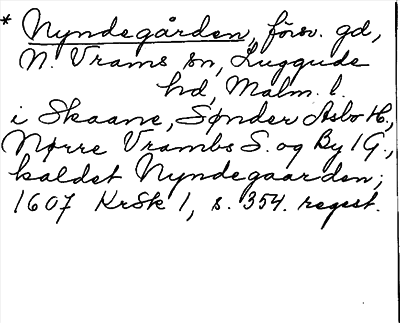 * Nyndegården, försv. gd,
N. Vrams sn, Luggude
hd, Malm. l.
i Skaane, Sønder Asbo H.,
Nørre Vrambs S. og By 1 G.,
kaldet Nyndegaarden;
1607 KrSk 1, s. 354. regest.